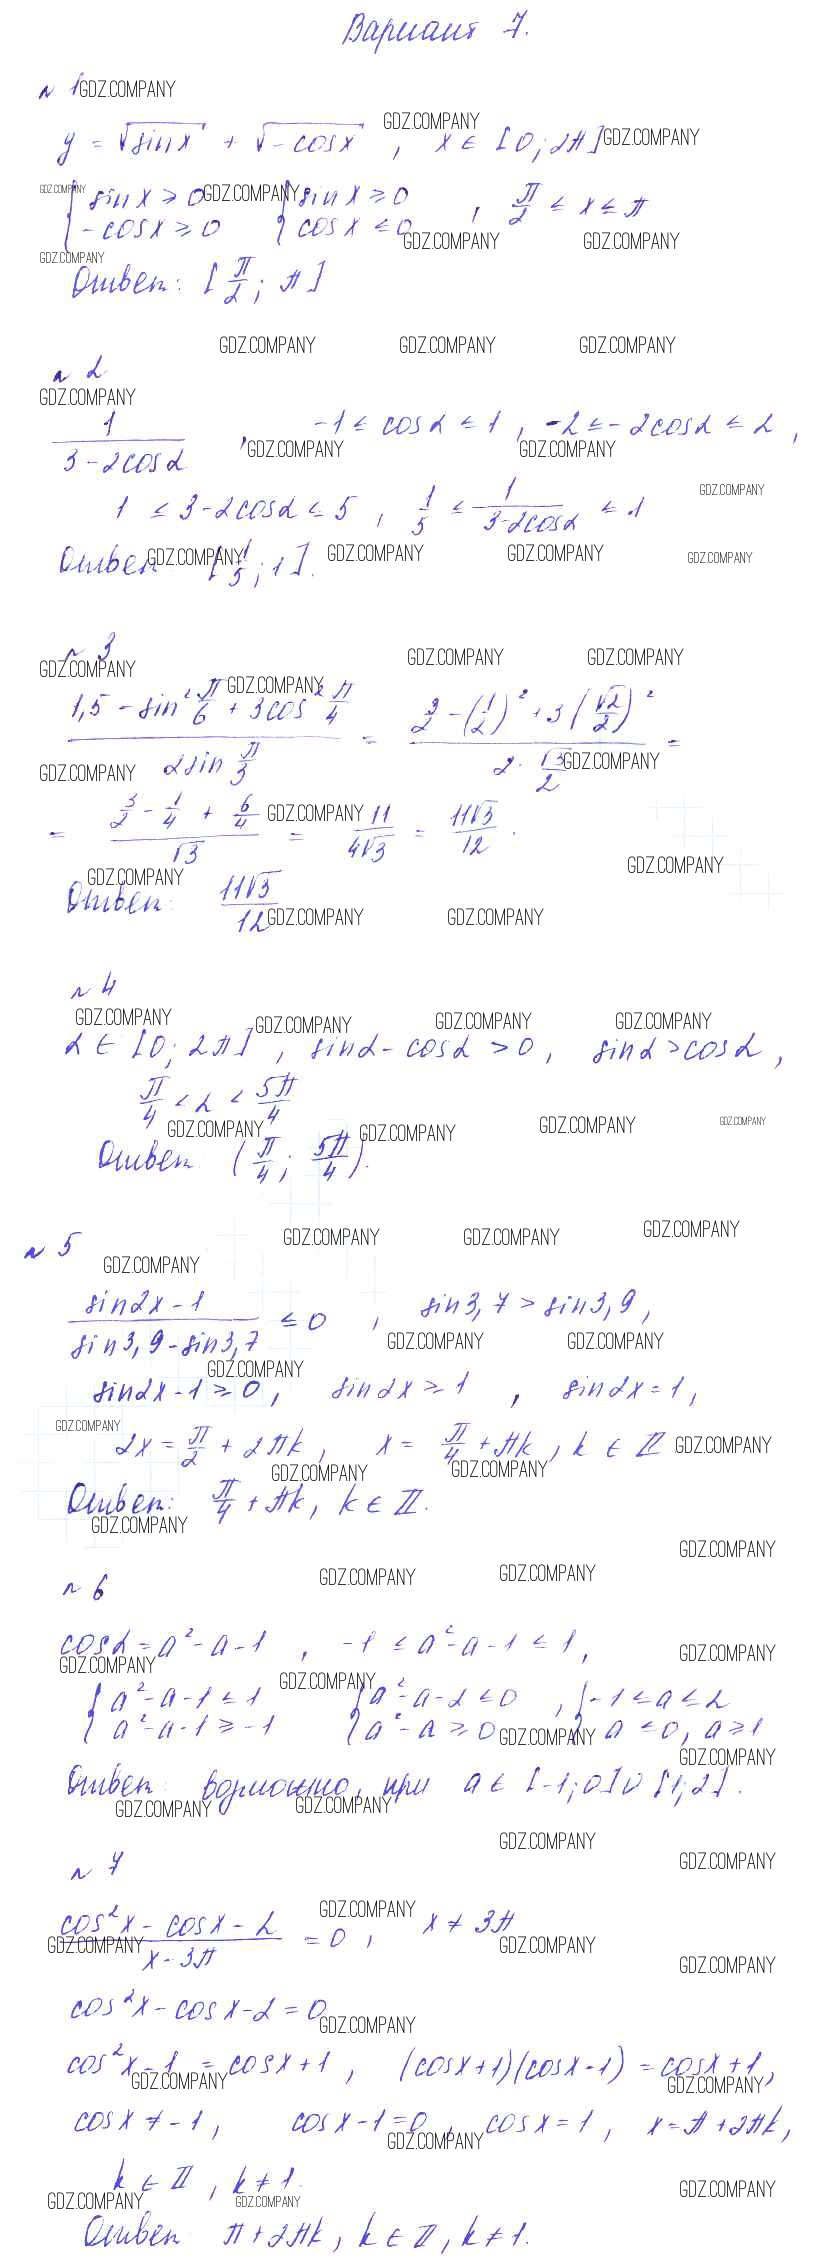 Вариант 7.
№ 1
y = √sinx + √-cosx, x ∈ [0; 2π]
{sinx ≥ 0 {sinx ≥ 0
{-cosx ≥ 0 {cosx ≤ 0, π/2 ≤ x ≤ π
Ответ: [π/2; π]
№ 2
1/(3-2cosα), -1 ≤ cosα ≤ 1, -2 ≤ -2cosα ≤ 2,
1 ≤ 3-2cosα ≤ 5, 1/5 ≤ 1/(3-2cosα) ≤ 1
Ответ [1/5; 1].
№ 3
(1,5 - sin² π/6 + 3cos² π/4)/(2sin π/3) = (3/2 - (1/2)² + 3(√2/2)²)/(2·√3/2) =
= (3/2 - 1/4 + 6/4)/√3 = 11/(4√3) = 11√3/12.
Ответ: 11√3/12
№ 4
α ∈ [0; 2π], sinα - cosα > 0, sinα > cosα,
π/4 < α < 5π/4
Ответ (π/4; 5π/4).
№ 5
(sin2x - 1)/(sin3,9 - sin3,7) ≤ 0, sin3,7 > sin3,9,
sin2x - 1 ≥ 0, sin2x ≥ 1, sin2x = 1,
2x = π/2 + 2πk, x = π/4 + πk, k ∈ Z
Ответ: π/4 + πk, k ∈ Z.
№ 6
cosα = a² - a - 1, -1 ≤ a² - a - 1 ≤ 1,
{a² - a - 1 ≤ 1 {a² - a - 2 ≤ 0, {-1 ≤ a ≤ 2
{a² - a - 1 ≥ -1 {a² - a ≥ 0 {a ≤ 0, a ≥ 1
Ответ: возможно, при a ∈ [-1; 0] ∪ [1; 2].
№ 7
(cos²x - cosx - 2)/(x - 3π) = 0, x ≠ 3π
cos²x - cosx - 2 = 0
cos²x - 1 = cosx + 1, (cosx + 1)(cosx - 1) = cosx + 1,
cosx ≠ -1, cosx - 1 = 0, cosx = 1, x = π + 2πk,
k ∈ Z, k ≠ 1.
Ответ π + 2πk, k ∈ Z, k ≠ 1.